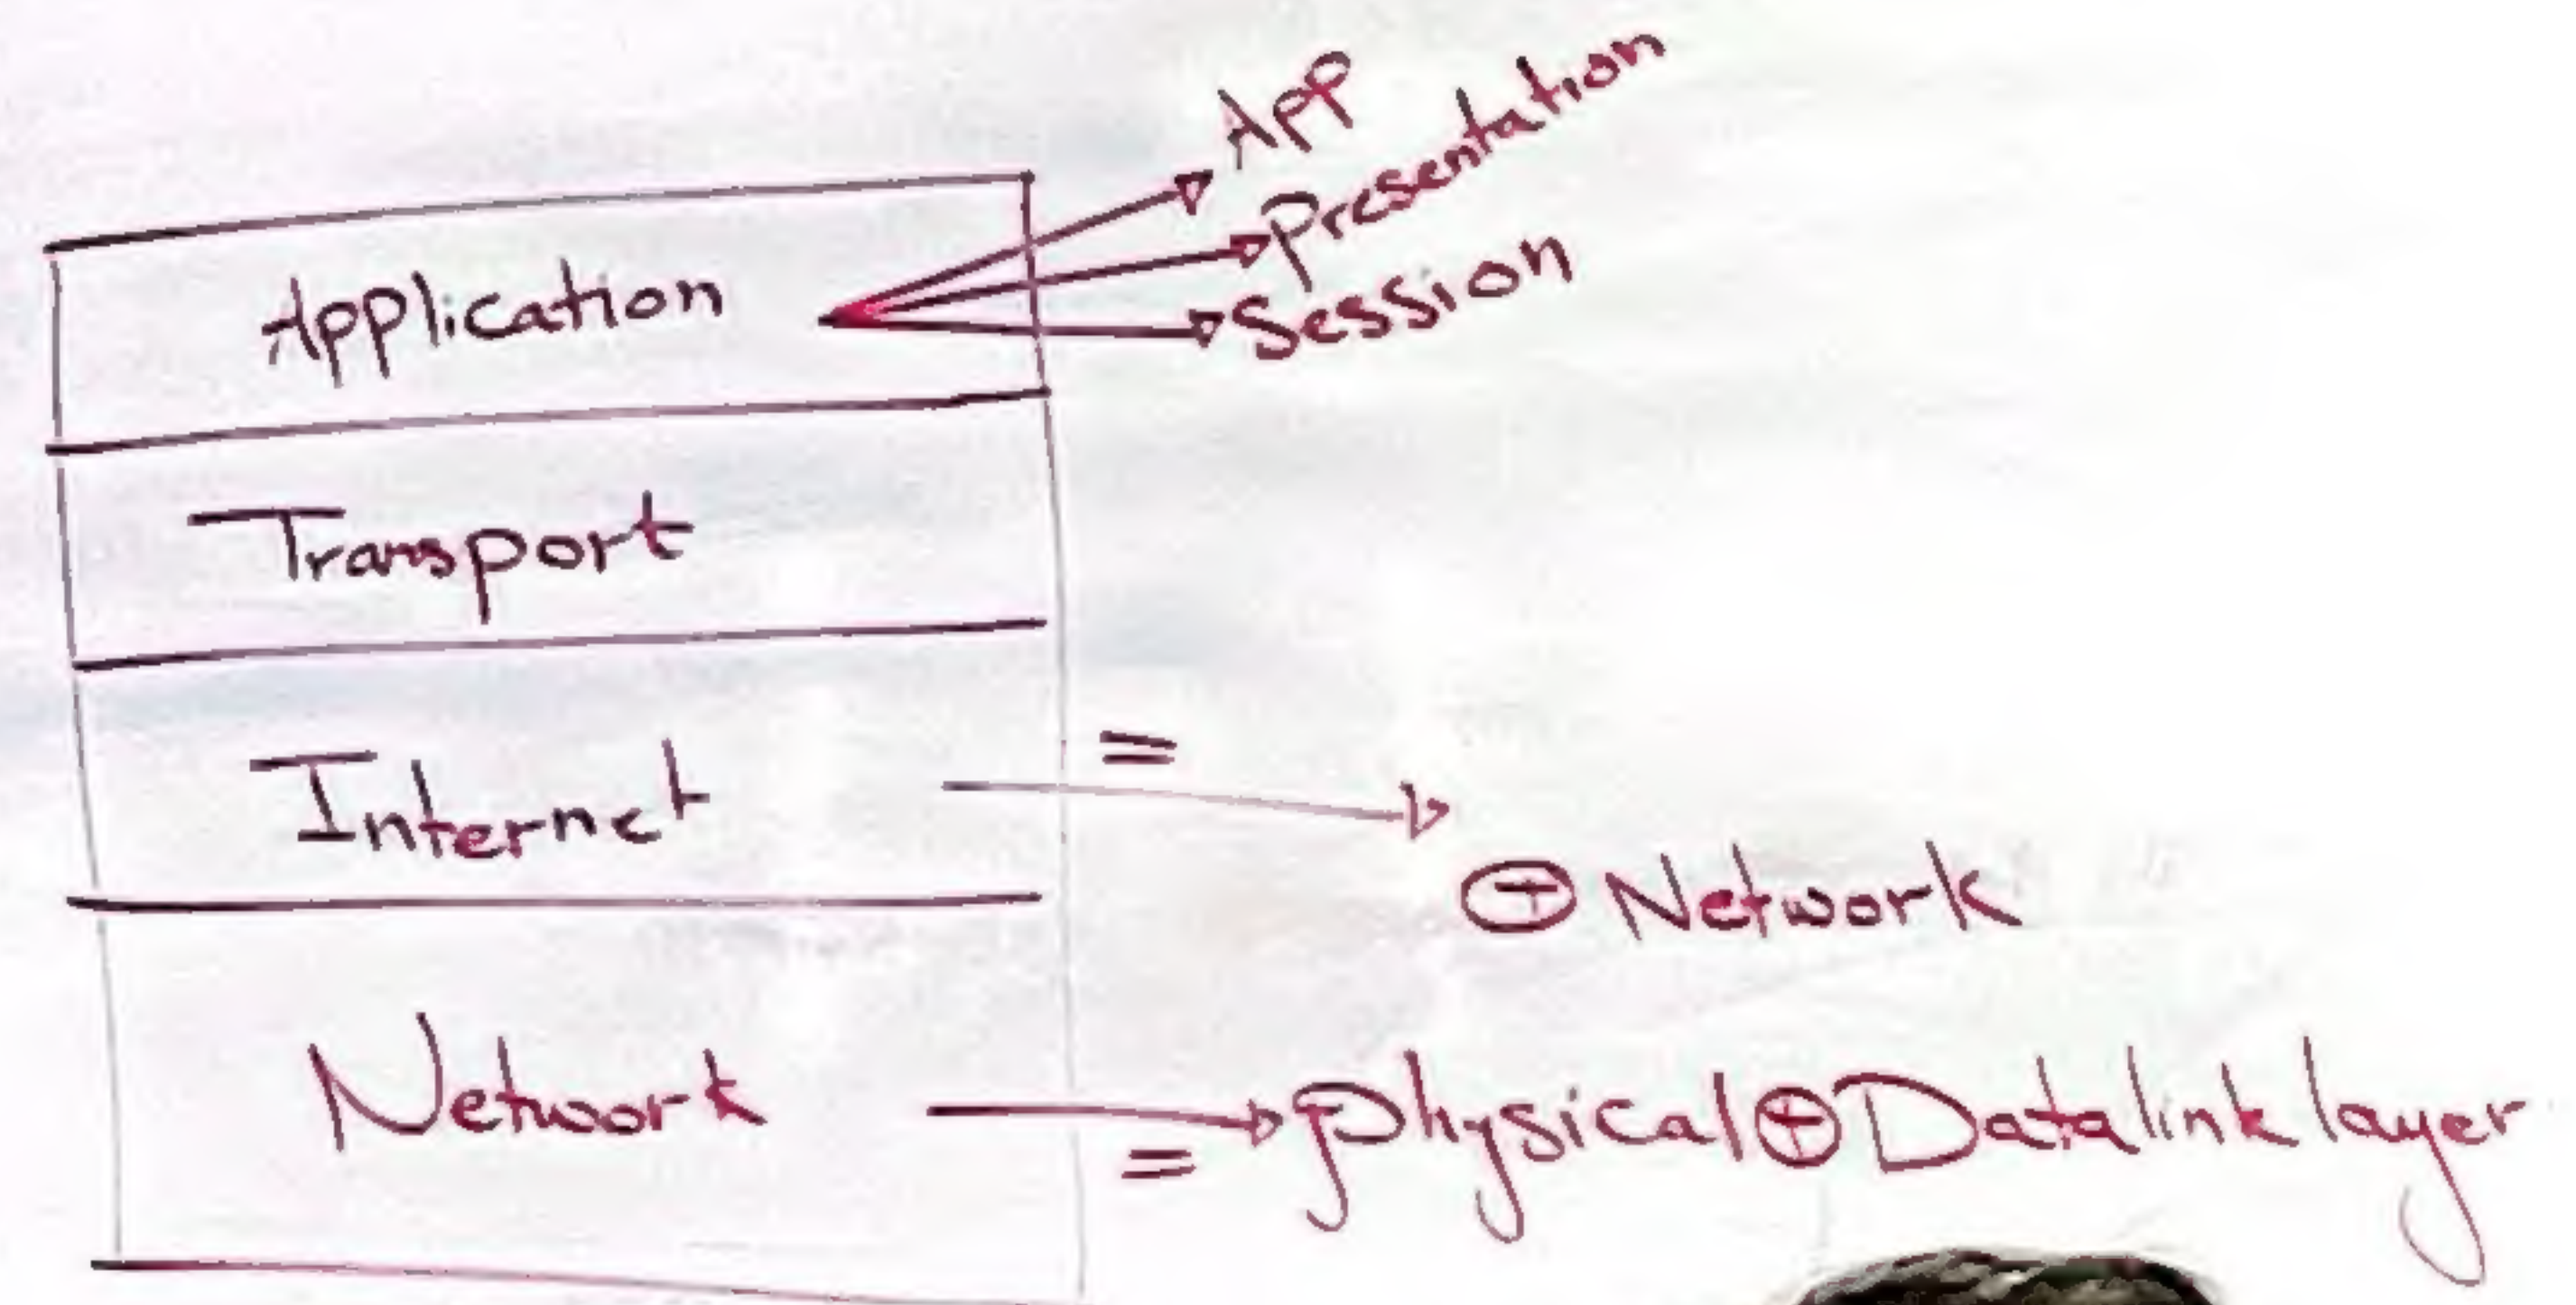 App
Presentation
Application
Session
Transport
Internet
=
⊕ Network
Network
=
Physical ⊕ Datalink layer